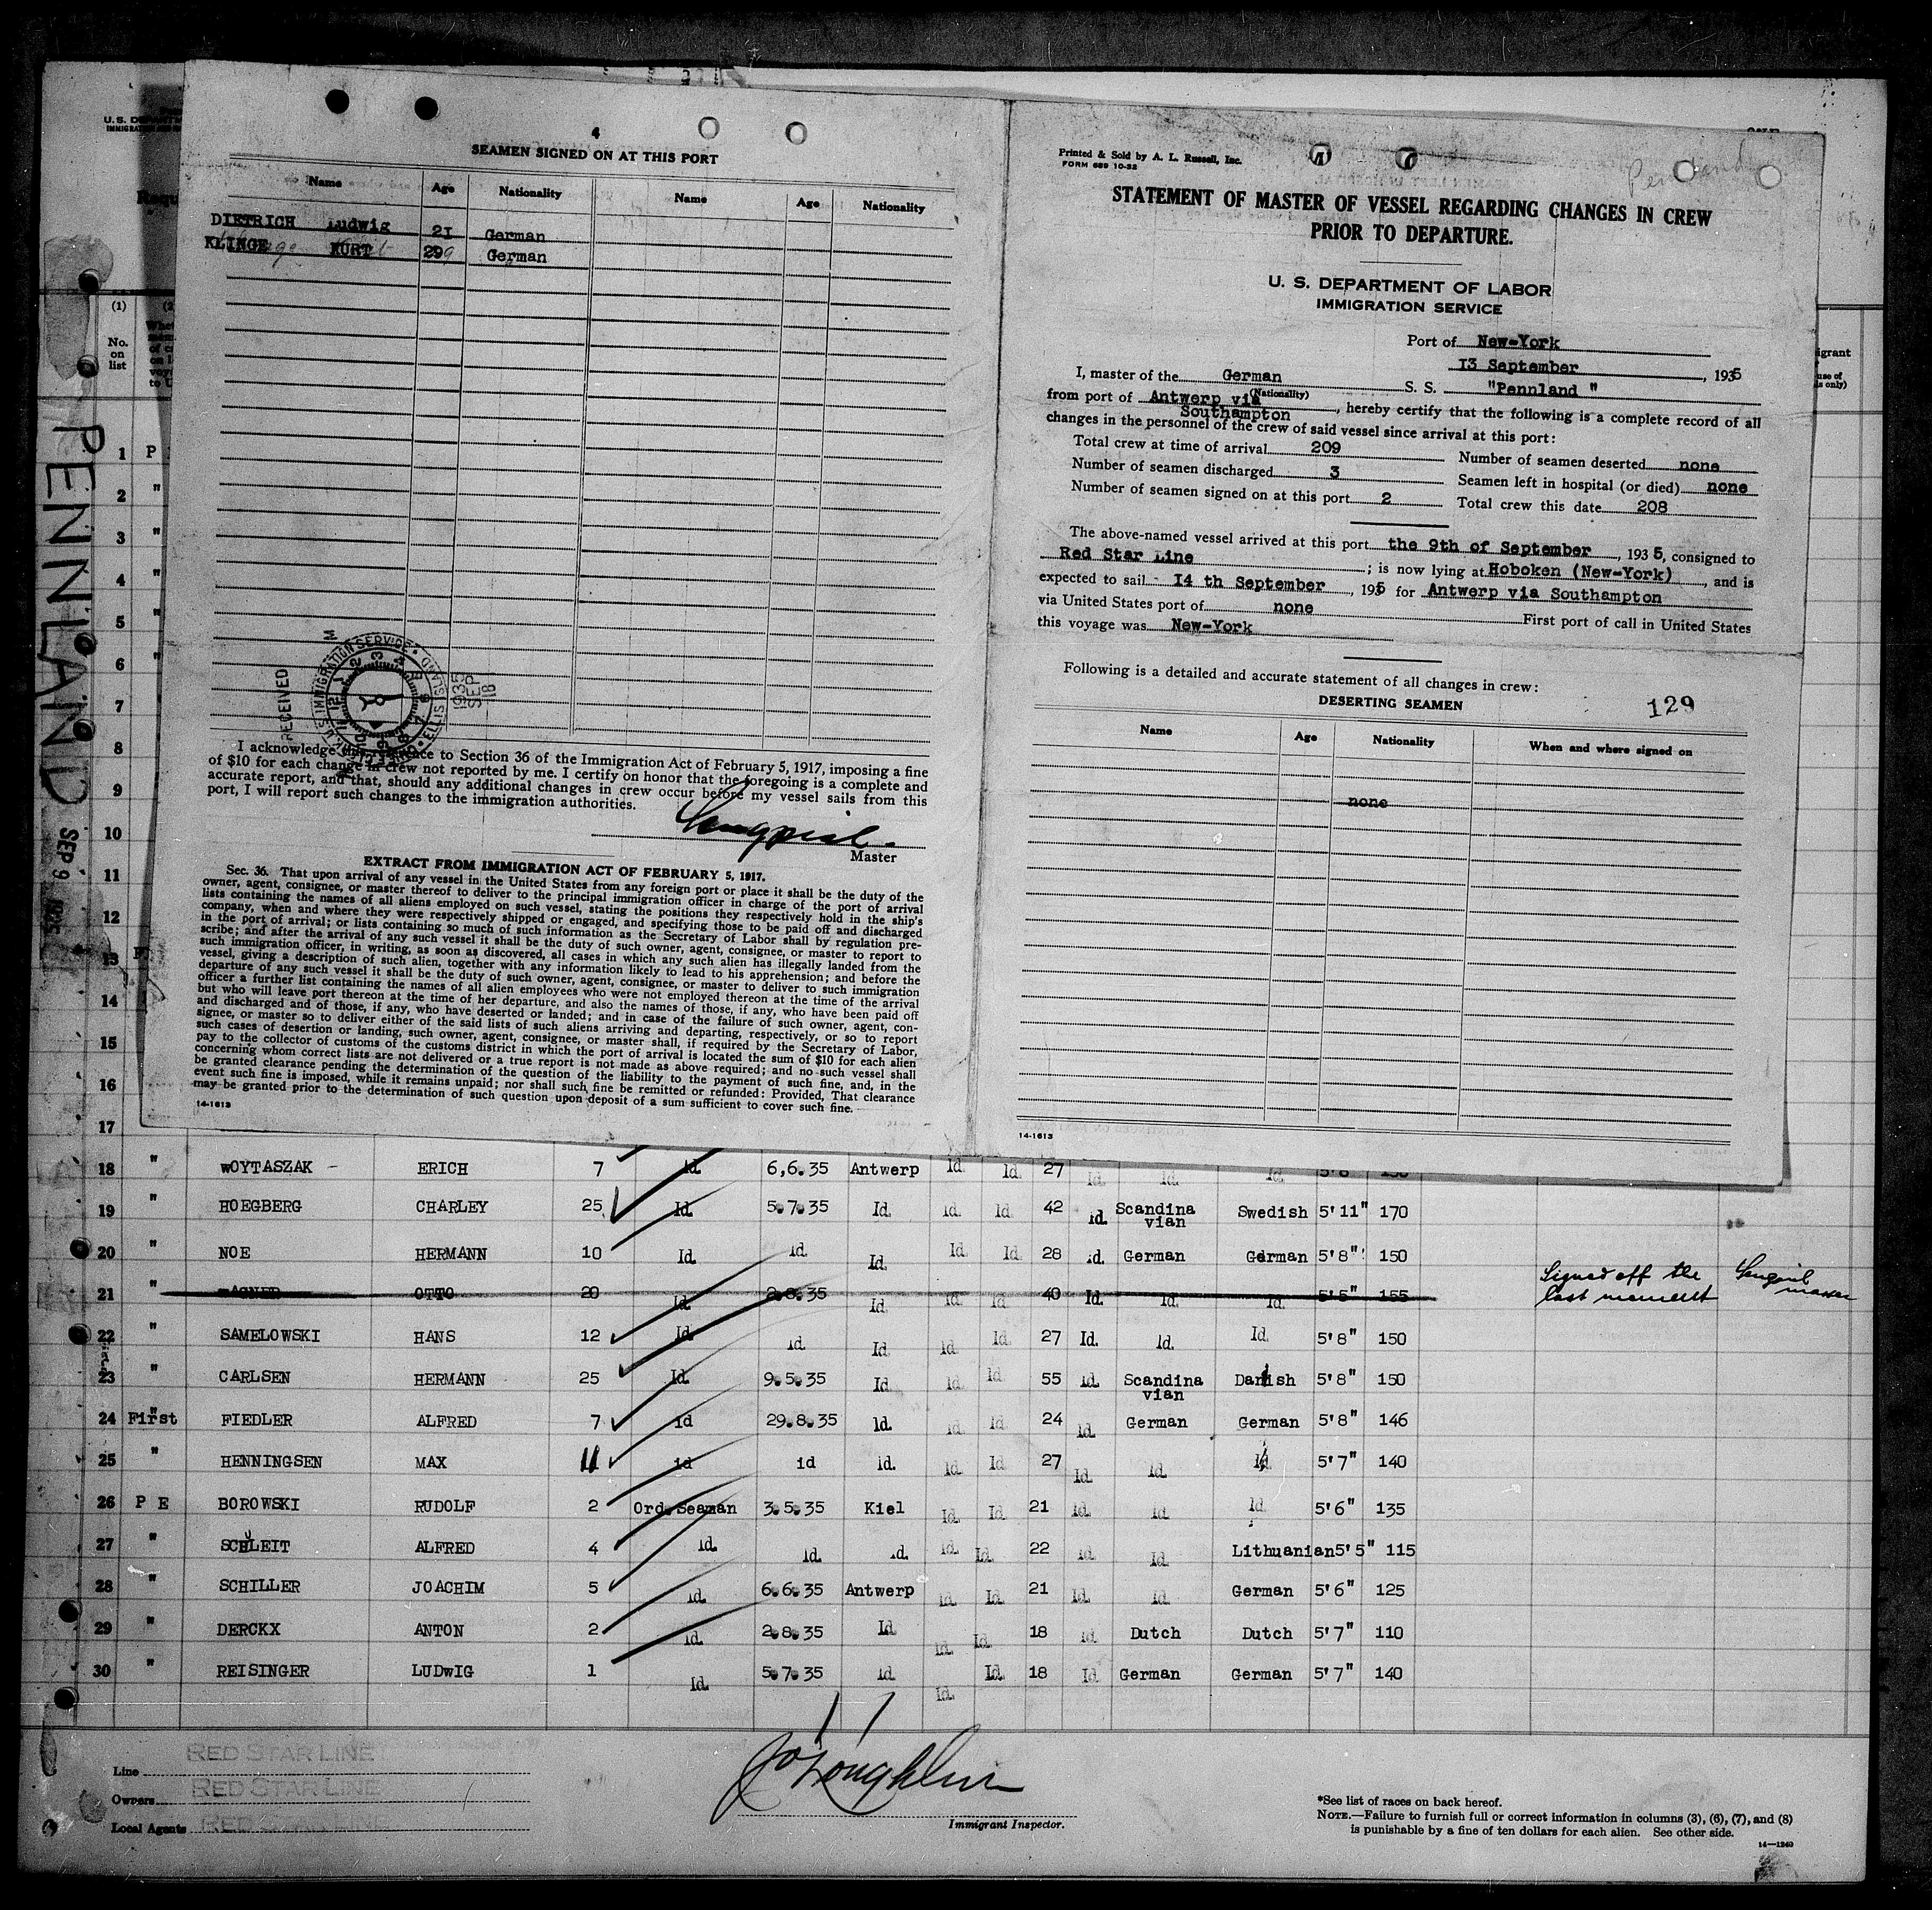 4
SEAMEN SIGNED ON AT THIS PORT
Name Age Nationality Name Age Nationality
DIETRICH Ludwig 21 German
KLINGE KURT 29 German
RECEIVED
U.S. IMMIGRATION SERVICE
ELLIS ISLAND
1935 SEP 18
I acknowledge to Section 36 of the Immigration Act of February 5, 1917, imposing a fine
of $10 for each change in crew not reported by me. I certify on honor that the foregoing is a complete and
accurate report, and that, should any additional changes in crew occur before my vessel sails from this
port, I will report such changes to the immigration authorities.
Master
EXTRACT FROM IMMIGRATION ACT OF FEBRUARY 5, 1917.
Sec. 36. That upon arrival of any vessel in the United States from any foreign port or place it shall be the duty of the
owner, agent, consignee, or master thereof to deliver to the principal immigration officer in charge of the port of arrival
lists containing the names of all aliens employed on such vessel, stating the positions they respectively hold in the ship's
company, when and where they were respectively shipped or engaged, and specifying those to be paid off and discharged
in the port of arrival; or lists containing so much of such information as the Secretary of Labor shall by regulation pre-
scribe; and after the arrival of any such vessel it shall be the duty of such owner, agent, consignee, or master to report to
such immigration officer, in writing, as soon as discovered, all cases in which any such alien has illegally landed from the
vessel, giving a description of such alien, together with any information likely to lead to his apprehension; and before the
departure of any such vessel it shall be the duty of such owner, agent, consignee, or master to deliver to such immigration
officer a further list containing the names of all alien employees who were not employed thereon at the time of the arrival
but who will leave port thereon at the time of her departure, and also the names of those, if any, who have been paid off
and discharged and of those, if any, who have deserted or landed; and in case of the failure of such owner, agent, con-
signee, or master so to deliver either of the said lists of such aliens arriving and departing, respectively, or so to report
such cases of desertion or landing, such owner, agent, consignee, or master shall, if required by the Secretary of Labor,
pay to the collector of customs of the customs district in which the port of arrival is located the sum of $10 for each alien
concerning whom correct lists are not delivered or a true report is not made as above required; and no such vessel shall
be granted clearance pending the determination of the question of the liability to the payment of such fine, and, in the
event such fine is imposed, while it remains unpaid; nor shall such fine be remitted or refunded: Provided, That clearance
may be granted prior to the determination of such question upon deposit of a sum sufficient to cover such fine.
14-1613
Printed & Sold by A. L. Russell, Inc.
FORM 689 10-32
STATEMENT OF MASTER OF VESSEL REGARDING CHANGES IN CREW
PRIOR TO DEPARTURE.
U. S. DEPARTMENT OF LABOR
IMMIGRATION SERVICE
Port of New-York
13 September, 1935
I, master of the German S. S. "Pennland "
(Nationality)
from port of Antwerp via Southampton, hereby certify that the following is a complete record of all
changes in the personnel of the crew of said vessel since arrival at this port:
Total crew at time of arrival 209 Number of seamen deserted none
Number of seamen discharged 3 Seamen left in hospital (or died) none
Number of seamen signed on at this port 2 Total crew this date 208
The above-named vessel arrived at this port the 9th of September, 1935, consigned to
Red Star Line; is now lying at Hoboken (New-York), and is
expected to sail 14 th September, 1935 for Antwerp via Southampton
via United States port of none First port of call in United States
this voyage was New-York
Following is a detailed and accurate statement of all changes in crew:
129
DESERTING SEAMEN
Name Age Nationality When and where signed on
none
14-1613
PENNLAND SEP 9 1935
(1)
No. on list
1 P
2 "
3 "
4 "
5 "
6 "
7
8
9
10
11
12
13
14
15
16
17
18 " WOYTASZAK ERICH 7 Id. 6,6.35 Antwerp Id. Id. 27 Id. Id. Id. 5'8" 150
19 " HOEGBERG CHARLEY 25 Id. 5.7.35 Id. Id. Id. 42 Id. Scandina vian Swedish 5'11" 170
20 " NOE HERMANN 10 Id. Id. Id. Id. Id. 28 Id. German German 5'8" 150
21 " OTTO 20 Id. 2.8.35 Id. Id. Id 40 Id. Id. Id. 5'5" 155 Signed off the last moment master
22 " SAMELOWSKI HANS 12 Id. Id. Id. Id. Id. 27 Id. Id. Id. 5'8" 150
23 " CARLSEN HERMANN 25 Id. 9.5.35 Id Id. Id. 55 Id. Scandina vian Danish 5'8" 150
24 First FIEDLER ALFRED 7 id 29.8.35 Id. Id. Id. 24 Id. German German 5'8" 146
25 " HENNINGSEN MAX 11 id id Id. Id. Id. 27 Id. Id. Id. 5'7" 140
26 P E BOROWSKI RUDOLF 2 Ord. Seaman 3.5.35 Kiel Id. Id. 21 Id. Id. Id. 5'6" 135
27 " SCHLEIT ALFRED 4 Id. Id. Id. Id. Id. 22 Id. Id. Lithuanian 5'5" 115
28 " SCHILLER JOACHIM 5 Id. 6.6.35 Antwerp Id. Id. 21 Id. Id. German 5'6" 125
29 " DERCKX ANTON 2 Id. 2.8.35 Id. Id. Id. 18 Id. Dutch Dutch 5'7" 110
30 " REISINGER LUDWIG 1 Id. 5.7.35 Id. Id. Id. 18 Id German German 5'7" 140
Line RED STAR LINE
Owners RED STAR LINE
Local Agents RED STAR LINE
Immigrant Inspector.
*See list of races on back hereof.
NOTE.—Failure to furnish full or correct information in columns (3), (6), (7), and (8)
is punishable by a fine of ten dollars for each alien. See other side.
14—1240